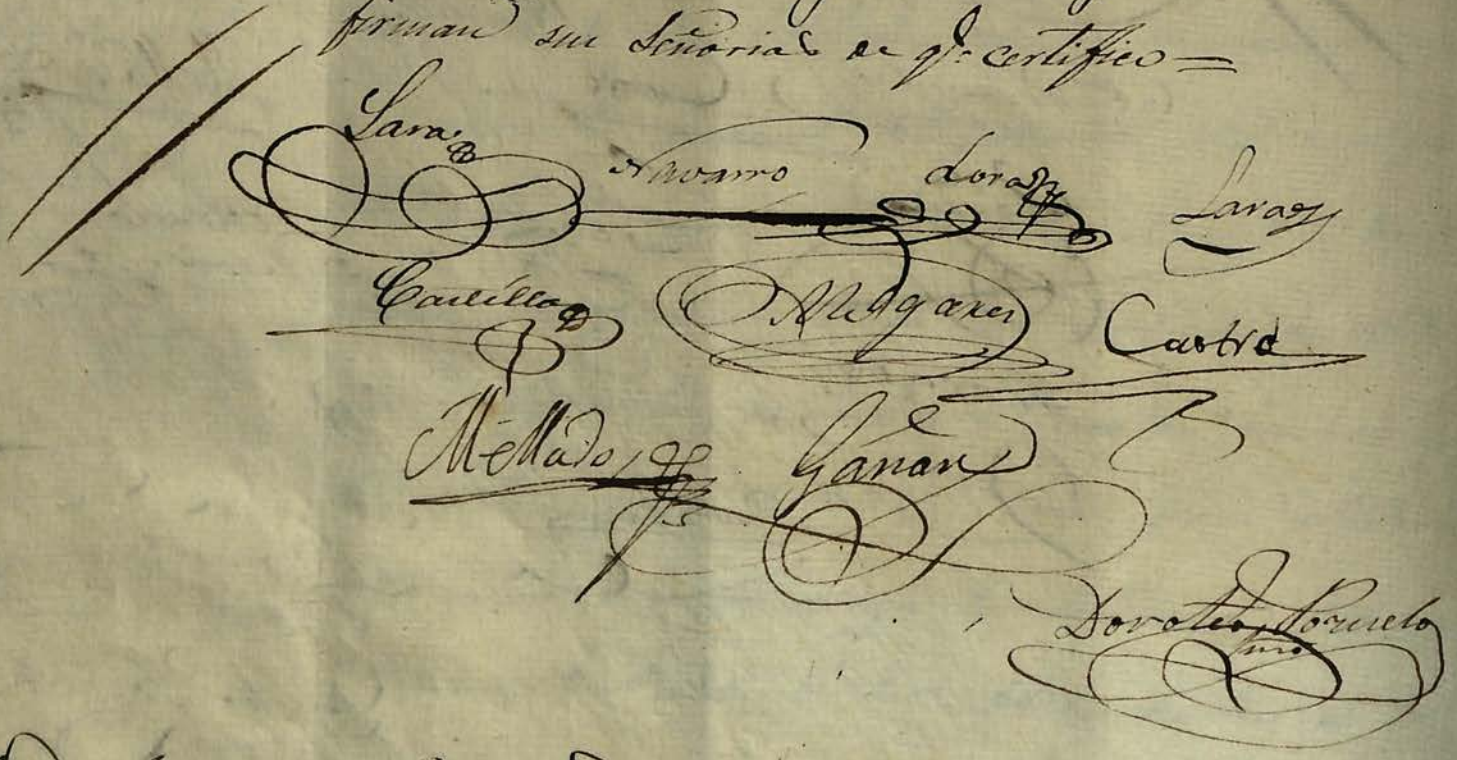 firman sus Señorias de qe. certifico =
Lara Navarro Lora Lara
Castillo Melgares Castro
Mellado Gañan
Doroteo Pozuelo